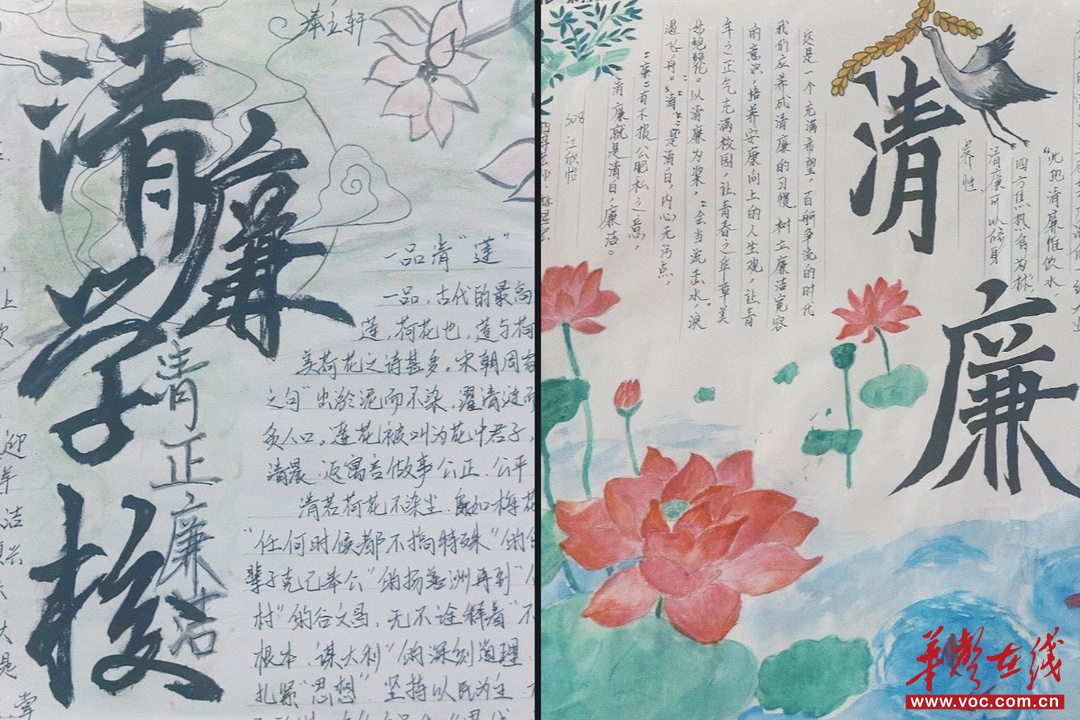 奉立轩
清廉学校
清正廉洁
一品清“莲”
一品，古代的最高
莲，荷花也，莲与荷
美荷花之诗甚多，宋朝周
之句“出淤泥而不染，濯清涟而
炙人口，莲花被叫为花中君子，
清晨.返寓言做事公正、公平
清若荷花不染尘.
“任何时候都不搞特殊”的
辈子克己奉公”的杨善洲再到“
村”的谷文昌，无不诠释着“不
根本、谋大利”的深刻道理
扎紧“思想” 坚持以民为主
清
廉
这是一个充满希望，百舸争流的时代
我们应养成清廉的习惯 树立廉洁宽容
的意识，培养安康向上的人生观，让青
年之正气充满校园，让青春之年华美
妙绝伦。以清廉为桨，“会当流击水，浪
遏飞舟。”“清”是清白，内心无污点，
“廉”有不损公肥私之意，
清廉就是清白，廉洁。
508 江欣怡
“此地清廉惟饮水，
四方焦热待为林”
清廉可以修身
养性
华声在线
www.voc.com.cn